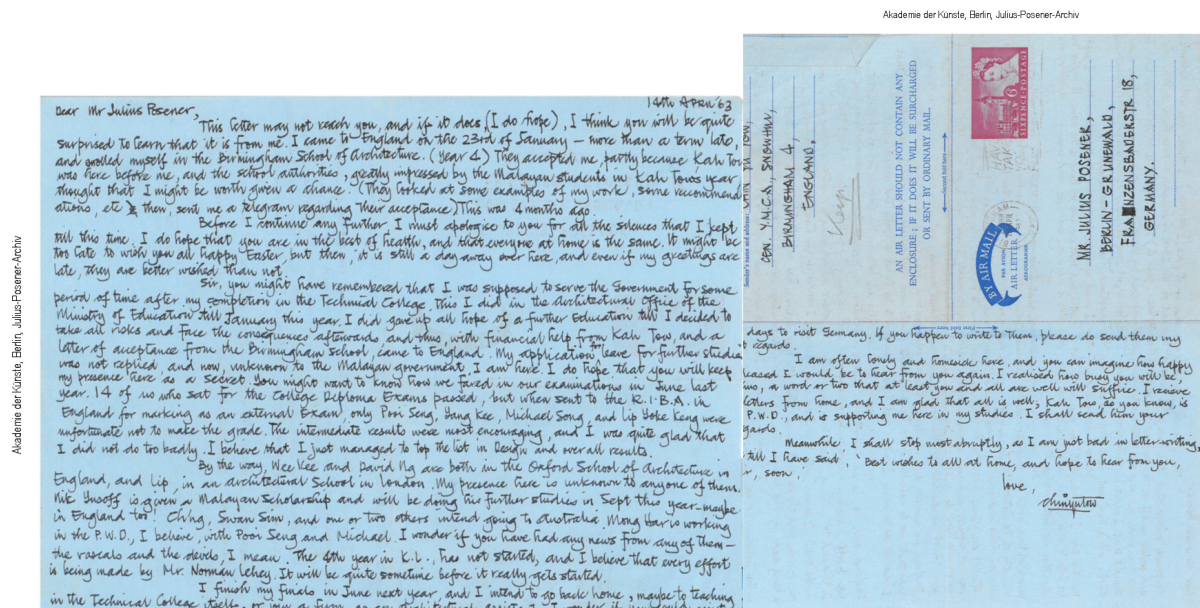 Akademie der Künste, Berlin, Julius-Posener-Archiv
Akademie der Künste, Berlin, Julius-Posener-Archiv
14th APRIL '63
Dear Mr Julius Posener,
This letter may not reach you, and if it does (I do hope), I think you will be quite
surprised to learn that it is from me. I came to England on the 23rd of January – more than a term late,
and enrolled myself in the Birmingham School of Architecture. (Year 4) They accepted me partly because Kah Tow
was here before me, and the school authorities, greatly impressed by the Malayan students in Kah Tow's year
thought that I might be worth given a chance. (They looked at some examples of my work, some recommend
ations, etc & then, sent me a telegram regarding their acceptance) This was 4 months ago
Before I continue any further, I must apologise to you for all the silences that I kept
till this time. I do hope that you are in the best of health, and that everyone at home is the same. It might be
too late to wish you all happy Easter, but then, it is still a day away over here, and even if my greetings are
late, they are better wished than not.
Sir, you might have remembered that I was supposed to serve the Government for some
period of time after my completion in the Technical College. This I did in the Architectural Office of the
Ministry of Education till January this year. I did gave up all hope of a further Education till I decided to
take all risks and face the consequences afterwards and thus, with financial help from Kah Tow, and a
letter of acceptance from the Birmingham School, came to England. My application leave for further studies
was not replied, and now, unknown to the Malayan government, I am here. I do hope that you will keep
my presence here as a secret. You might want to know how we fared in our examinations in June last
year. 14 of us who sat for the College Diploma Exams passed, but when sent to the R.I.B.A. in
England for marking as an external Exam, only Pooi Seng, Yang Kee, Michael Song, and Lip Yoke Keng were
unfortunate not to make the grade. The intermediate results were most encouraging, and I was quite glad that
I did not do too badly. I believe that I just managed to top the list in Design and overall results.
By the way, Wee Kee and David Ng are both in the Oxford School of Architecture in
England, and Lip, in an architectural School in London. My presence here is unknown to anyone of them.
Nik Yusoff is given a Malayan Scholarship and will be doing his further studies in Sept this year – maybe
in England too! Ch'ng, Swan Sim, and one or two others intend going to Australia. Mong Har is working
in the P.W.D., I believe, with Pooi Seng and Michael. I wonder if you have had any news from any of them –
the rascals and the devils, I mean. The 4th year in K.L. has not started, and I believe that every effort
is being made by Mr. Norman Lehey. It will be quite sometime before it really gets started.
I finish my finals in June next year, and I intend to go back home, maybe to teaching
in the Technical College itself, or
Sender's name and address:
CEN. Y.M.C.A, SNOWHILL,
BIRMINGHAM 4,
ENGLAND.
AN AIR LETTER SHOULD NOT CONTAIN ANY
ENCLOSURE; IF IT DOES IT WILL BE SURCHARGED
OR SENT BY ORDINARY MAIL.
Second fold here
6D
SIXPENCE·POSTAGE
BY AIR MAIL
AIR LETTER
AEROGRAMME
MR. JULIUS POSENER,
BERLIN – GRUNEWALD,
FRANZENSBADERSTR 18,
GERMANY.
First fold here
days to visit Germany. If you happen to write to them, please do send them my
regards.
I am often lonely and homesick here, and you can imagine how happy
I would be to hear from you again. I realised how busy you will be,
a word or two that at least you and all are well will suffice. I receive
letters from home, and I am glad that all is well. Kah Tow, as you know, is
P.W.D., and is supporting me here in my studies. I shall send him your
Meanwhile I shall stop most abruptly, as I am just bad in letter-writing,
till I have said, 'Best wishes to all at home, and hope to hear from you,
soon,
love,